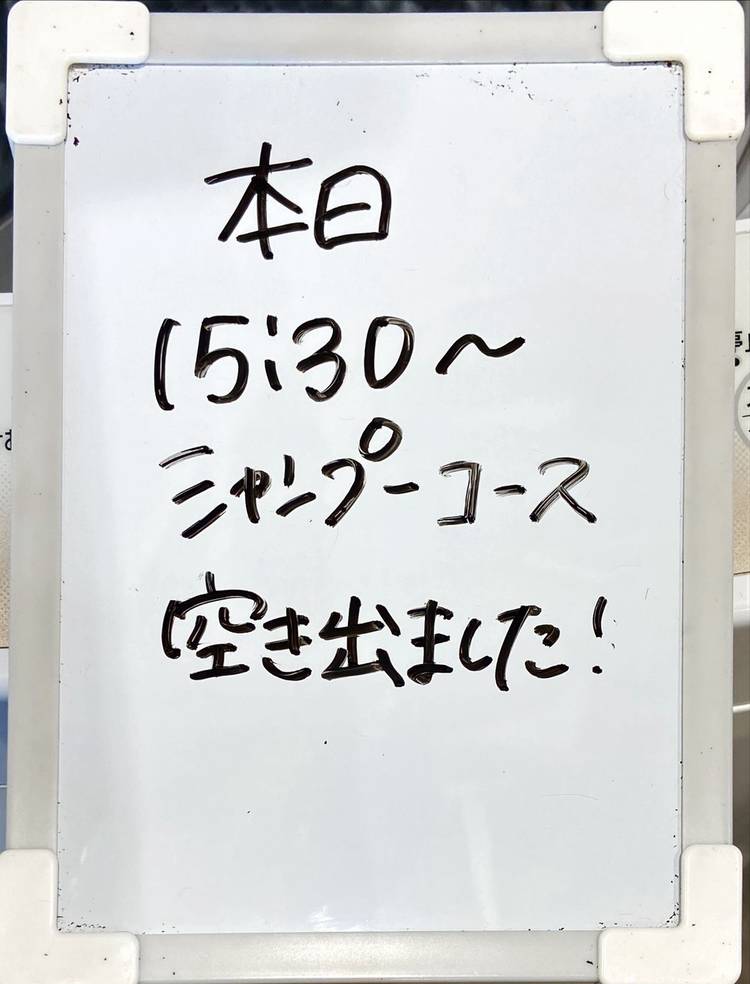 本日
15:30～
シャンプーコース
空き出ました!